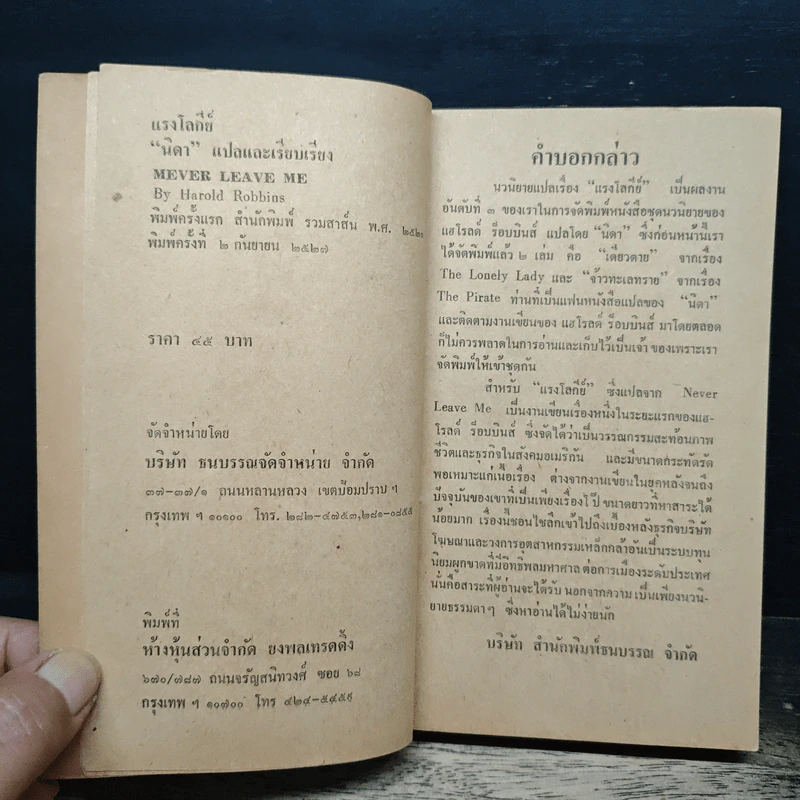 แรงโลกีย์
“นิดา” แปลและเรียบเรียง
MEVER LEAVE ME
By Harold Robbins
พิมพ์ครั้งแรก สำนักพิมพ์ รวมสาส์น พ.ศ.
พิมพ์ครั้งที่ ๒ กันยายน ๒๕๒๗
ราคา ๔๕ บาท
จัดจำหน่ายโดย
บริษัท ธนบรรณจัดจำหน่าย จำกัด
๓๗-๓๗/๑ ถนนหลานหลวง เขตป้อมปราบ ฯ
กรุงเทพ ฯ ๑๐๑๐๐ โทร. ๒๘๒-๔๗๕๓,๒๘๑-๐๘๕๕
พิมพ์ที่
ห้างหุ้นส่วนจำกัด ยงพลเทรดดิ้ง
๖๗๐/๗๘๗ ถนนจรัญสนิทวงศ์ ซอย ๖๘
กรุงเทพ ฯ ๑๐๗๐๐ โทร
คำบอกกล่าว
นวนิยายแปลเรื่อง “แรงโลกีย์” เป็นผลงาน
อันดับที่ ๓ ของเราในการจัดพิมพ์หนังสือชุดนวนิยายของ
แฮโรลด์ ร็อบบินส์ แปลโดย “นิดา” ซึ่งก่อนหน้านี้เรา
ได้จัดพิมพ์แล้ว ๒ เล่ม คือ “เดียวดาย” จากเรื่อง
The Lonely Lady และ “จ้าวทะเลทราย” จากเรื่อง
The Pirate ท่านที่เป็นแฟนหนังสือแปลของ “นิดา”
และติดตามงานเขียนของ แฮโรลด์ ร็อบบินส์ มาโดยตลอด
ก็ไม่ควรพลาดในการอ่านและเก็บไว้เป็นเจ้า ของเพราะเรา
จัดพิมพ์ให้เข้าชุดกัน
สำหรับ “แรงโลกีย์” ซึ่งแปลจาก Never
Leave Me เป็นงานเขียนเรื่องหนึ่งในระยะแรกของแฮ-
โรลด์ ร็อบบินส์ ซึ่งจัดได้ว่าเป็นวรรณกรรมสะท้อนภาพ
ชีวิตและธุรกิจในสังคมอเมริกัน และมีขนาดกระทัดรัด
พอเหมาะแก่เนื้อเรื่อง ต่างจากงานเขียนในยุคหลังจนถึง
ปัจจุบันของเขาที่เป็นเพียงเรื่องโป๊ ขนาดยาวที่หาสาระได้
น้อยมาก เรื่องนี้ชอนไชลึกเข้าไปถึงเบื้องหลังธุรกิจบริษัท
โฆษณาและวงการอุตสาหกรรมเหล็กกล้าอันเป็นระบบทุน
นิยมผูกขาดที่มีอิทธิพลมหาศาล ต่อการเมืองระดับประเทศ
นั่นคือสาระที่ผู้อ่านจะได้รับ นอกจากความ เป็นเพียงนวนิ-
ยายธรรมดา ๆ ซึ่งหาอ่านได้ไม่ง่ายนัก
บริษัท สำนักพิมพ์ธนบรรณ จำกัด